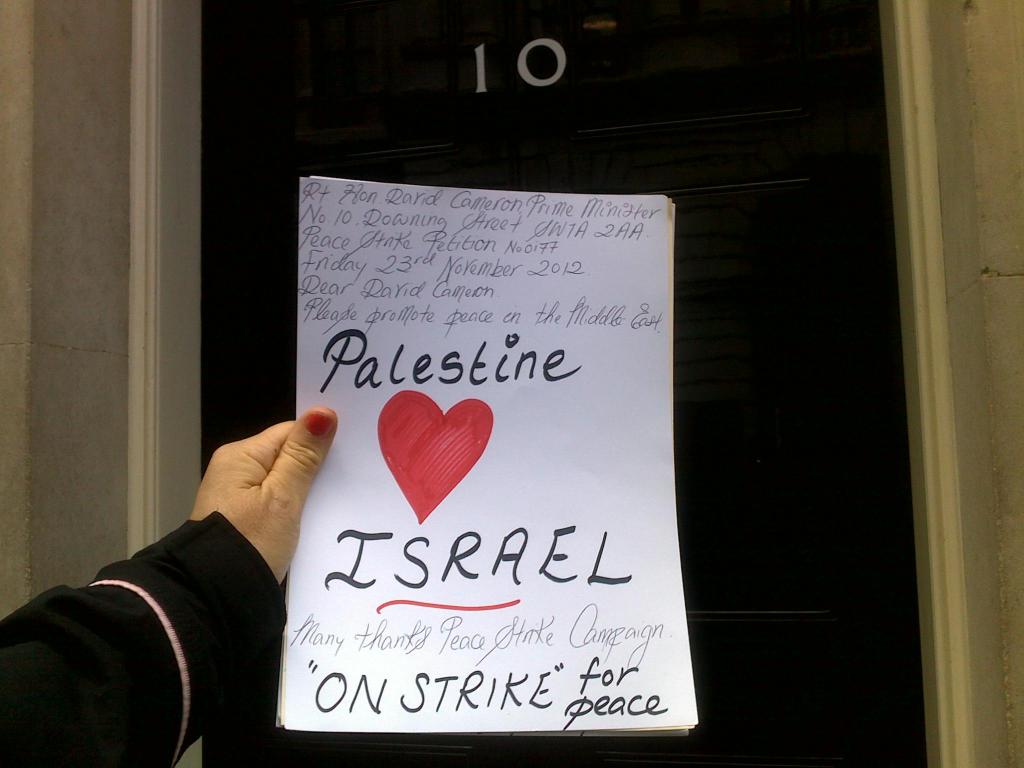 10
Rt Hon. David Cameron, Prime Minister
No 10. Downing Street, SW1A 2AA.
Peace Strike Petition No 0177
Friday 23rd November 2012.
Dear David Cameron.
Please promote peace in the Middle East.
Palestine
ISRAEL
Many thanks Peace Strike Campaign.
"ON STRIKE" for
peace